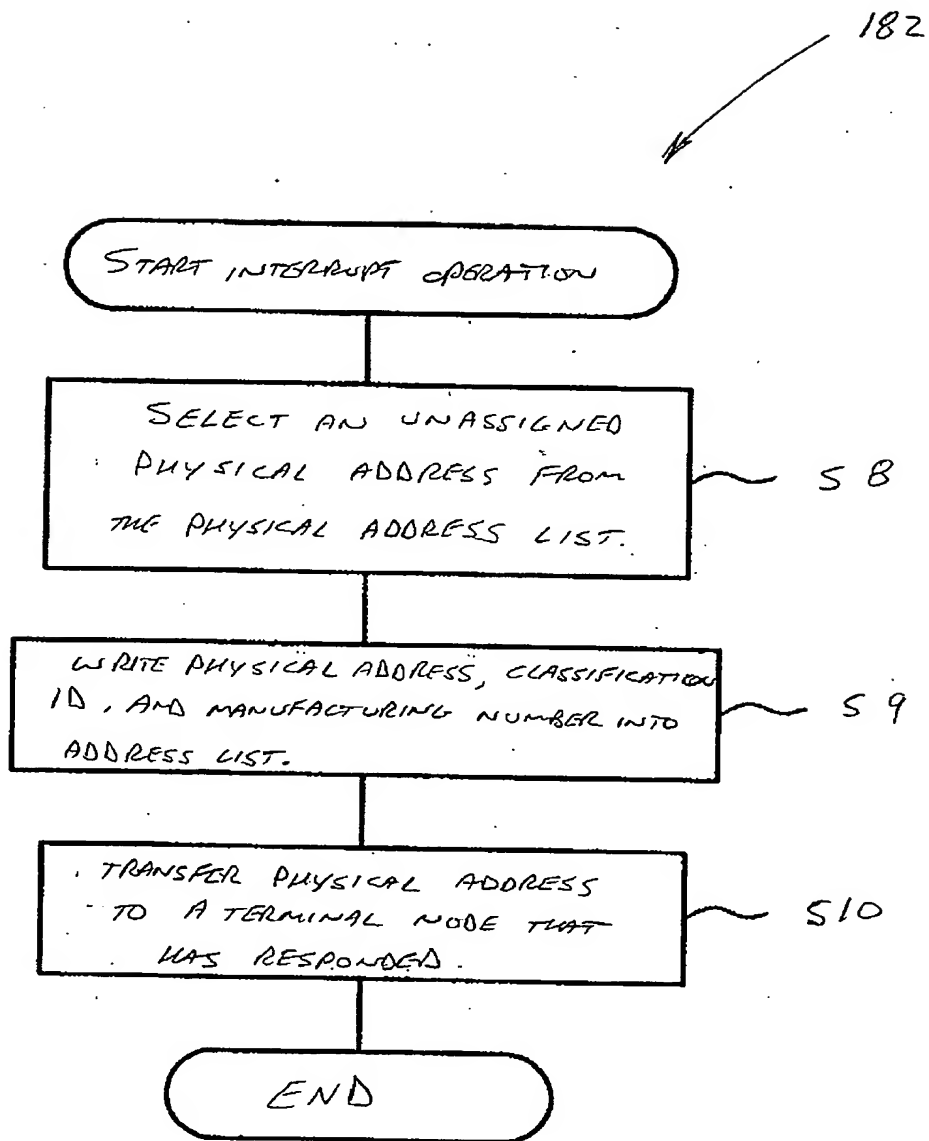 182
START INTERRUPT OPERATION
SELECT AN UNASSIGNED
PHYSICAL ADDRESS FROM
THE PHYSICAL ADDRESS LIST.
S8
WRITE PHYSICAL ADDRESS, CLASSIFICATION
ID, AND MANUFACTURING NUMBER INTO
ADDRESS LIST.
S9
TRANSFER PHYSICAL ADDRESS
TO A TERMINAL NODE THAT
HAS RESPONDED.
S10
END